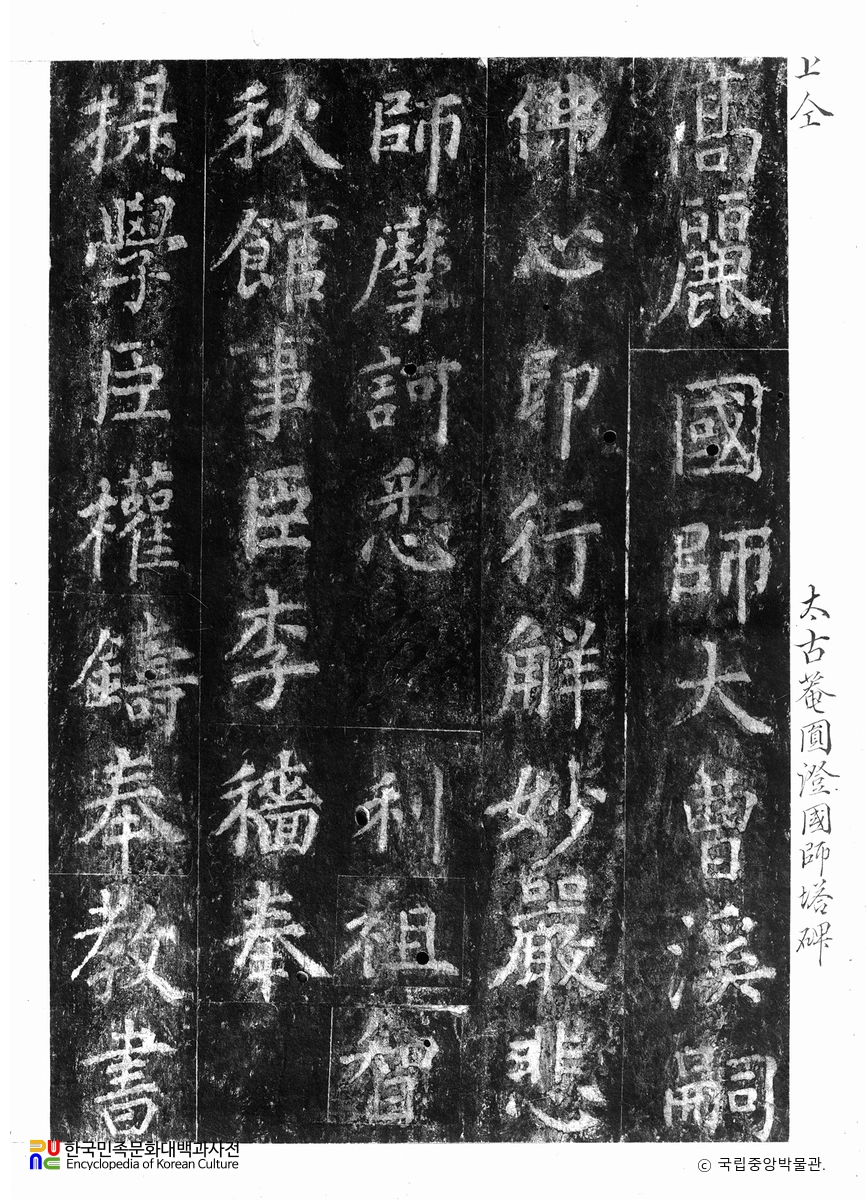 上仝
太古菴圓證國師塔碑
髙麗國師大曹溪嗣
佛心即行解妙嚴悲
師摩訶悉利祖智
秋館事臣李穡奉
提學臣權鑄奉教書
한국민족문화대백과사전
Encyclopedia of Korean Culture
© 국립중앙박물관.